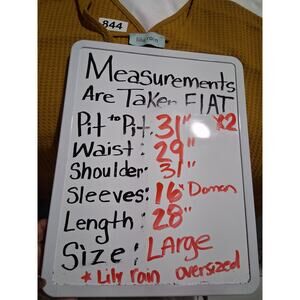 844
lily rain
Measurements
Are Taken FLAT
Pit to Pit: 31" x2
Waist: 29"
Shoulder: 31"
Sleeves: 16" Doman
Length: 28"
Size: LARGE
* Lily rain oversized